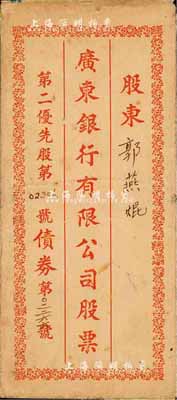 股東 郭燕焜
廣東銀行有限公司股票
第二優先股第 號債券第 號
上海陽明拍卖